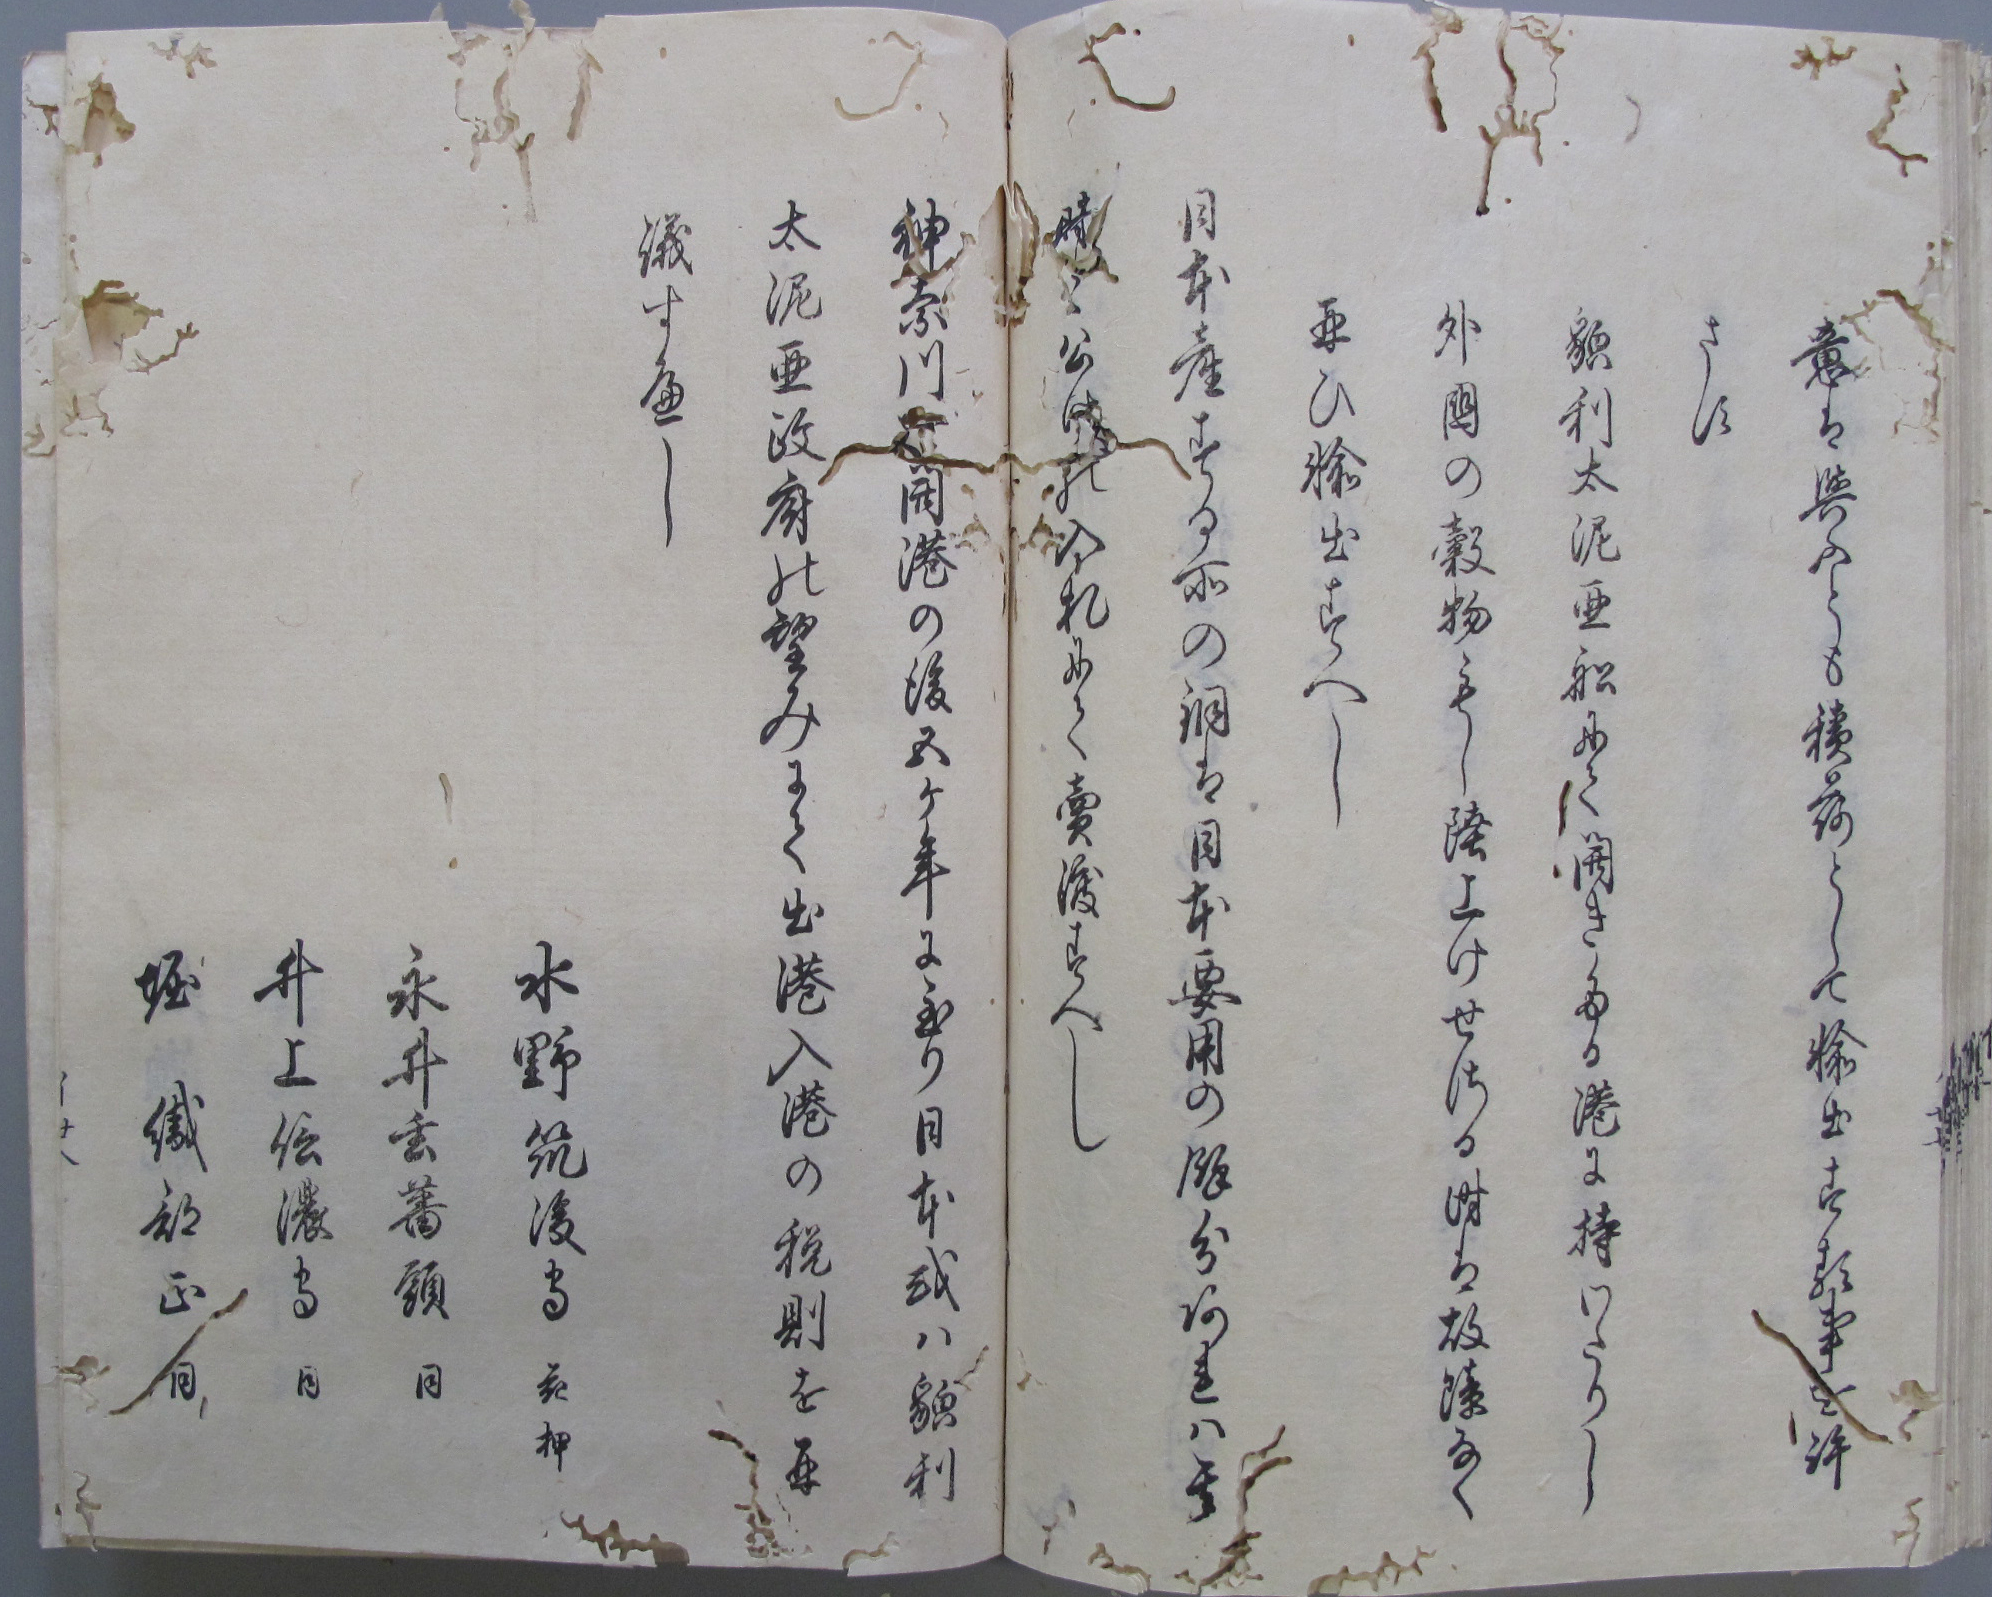 意は與ふとも積荷として輸出する事を許
さす
貌利太泥亜船にて開きたる港に持いたりし
外国の穀物もし陸上けせさる時は故障なく
再ひ輸出すへし
日本産する所の銅は日本要用の餘分あれハ其
時々公けの入札にて賣渡すへし
神奈川開港の後五ケ年に至り日本或ハ貌利
太泥亜政府の望みにて出港入港の税則を再
議すへし
水野筑後守 花押
永井玄蕃頭 同
井上信濃守 同
堀 織部正 同